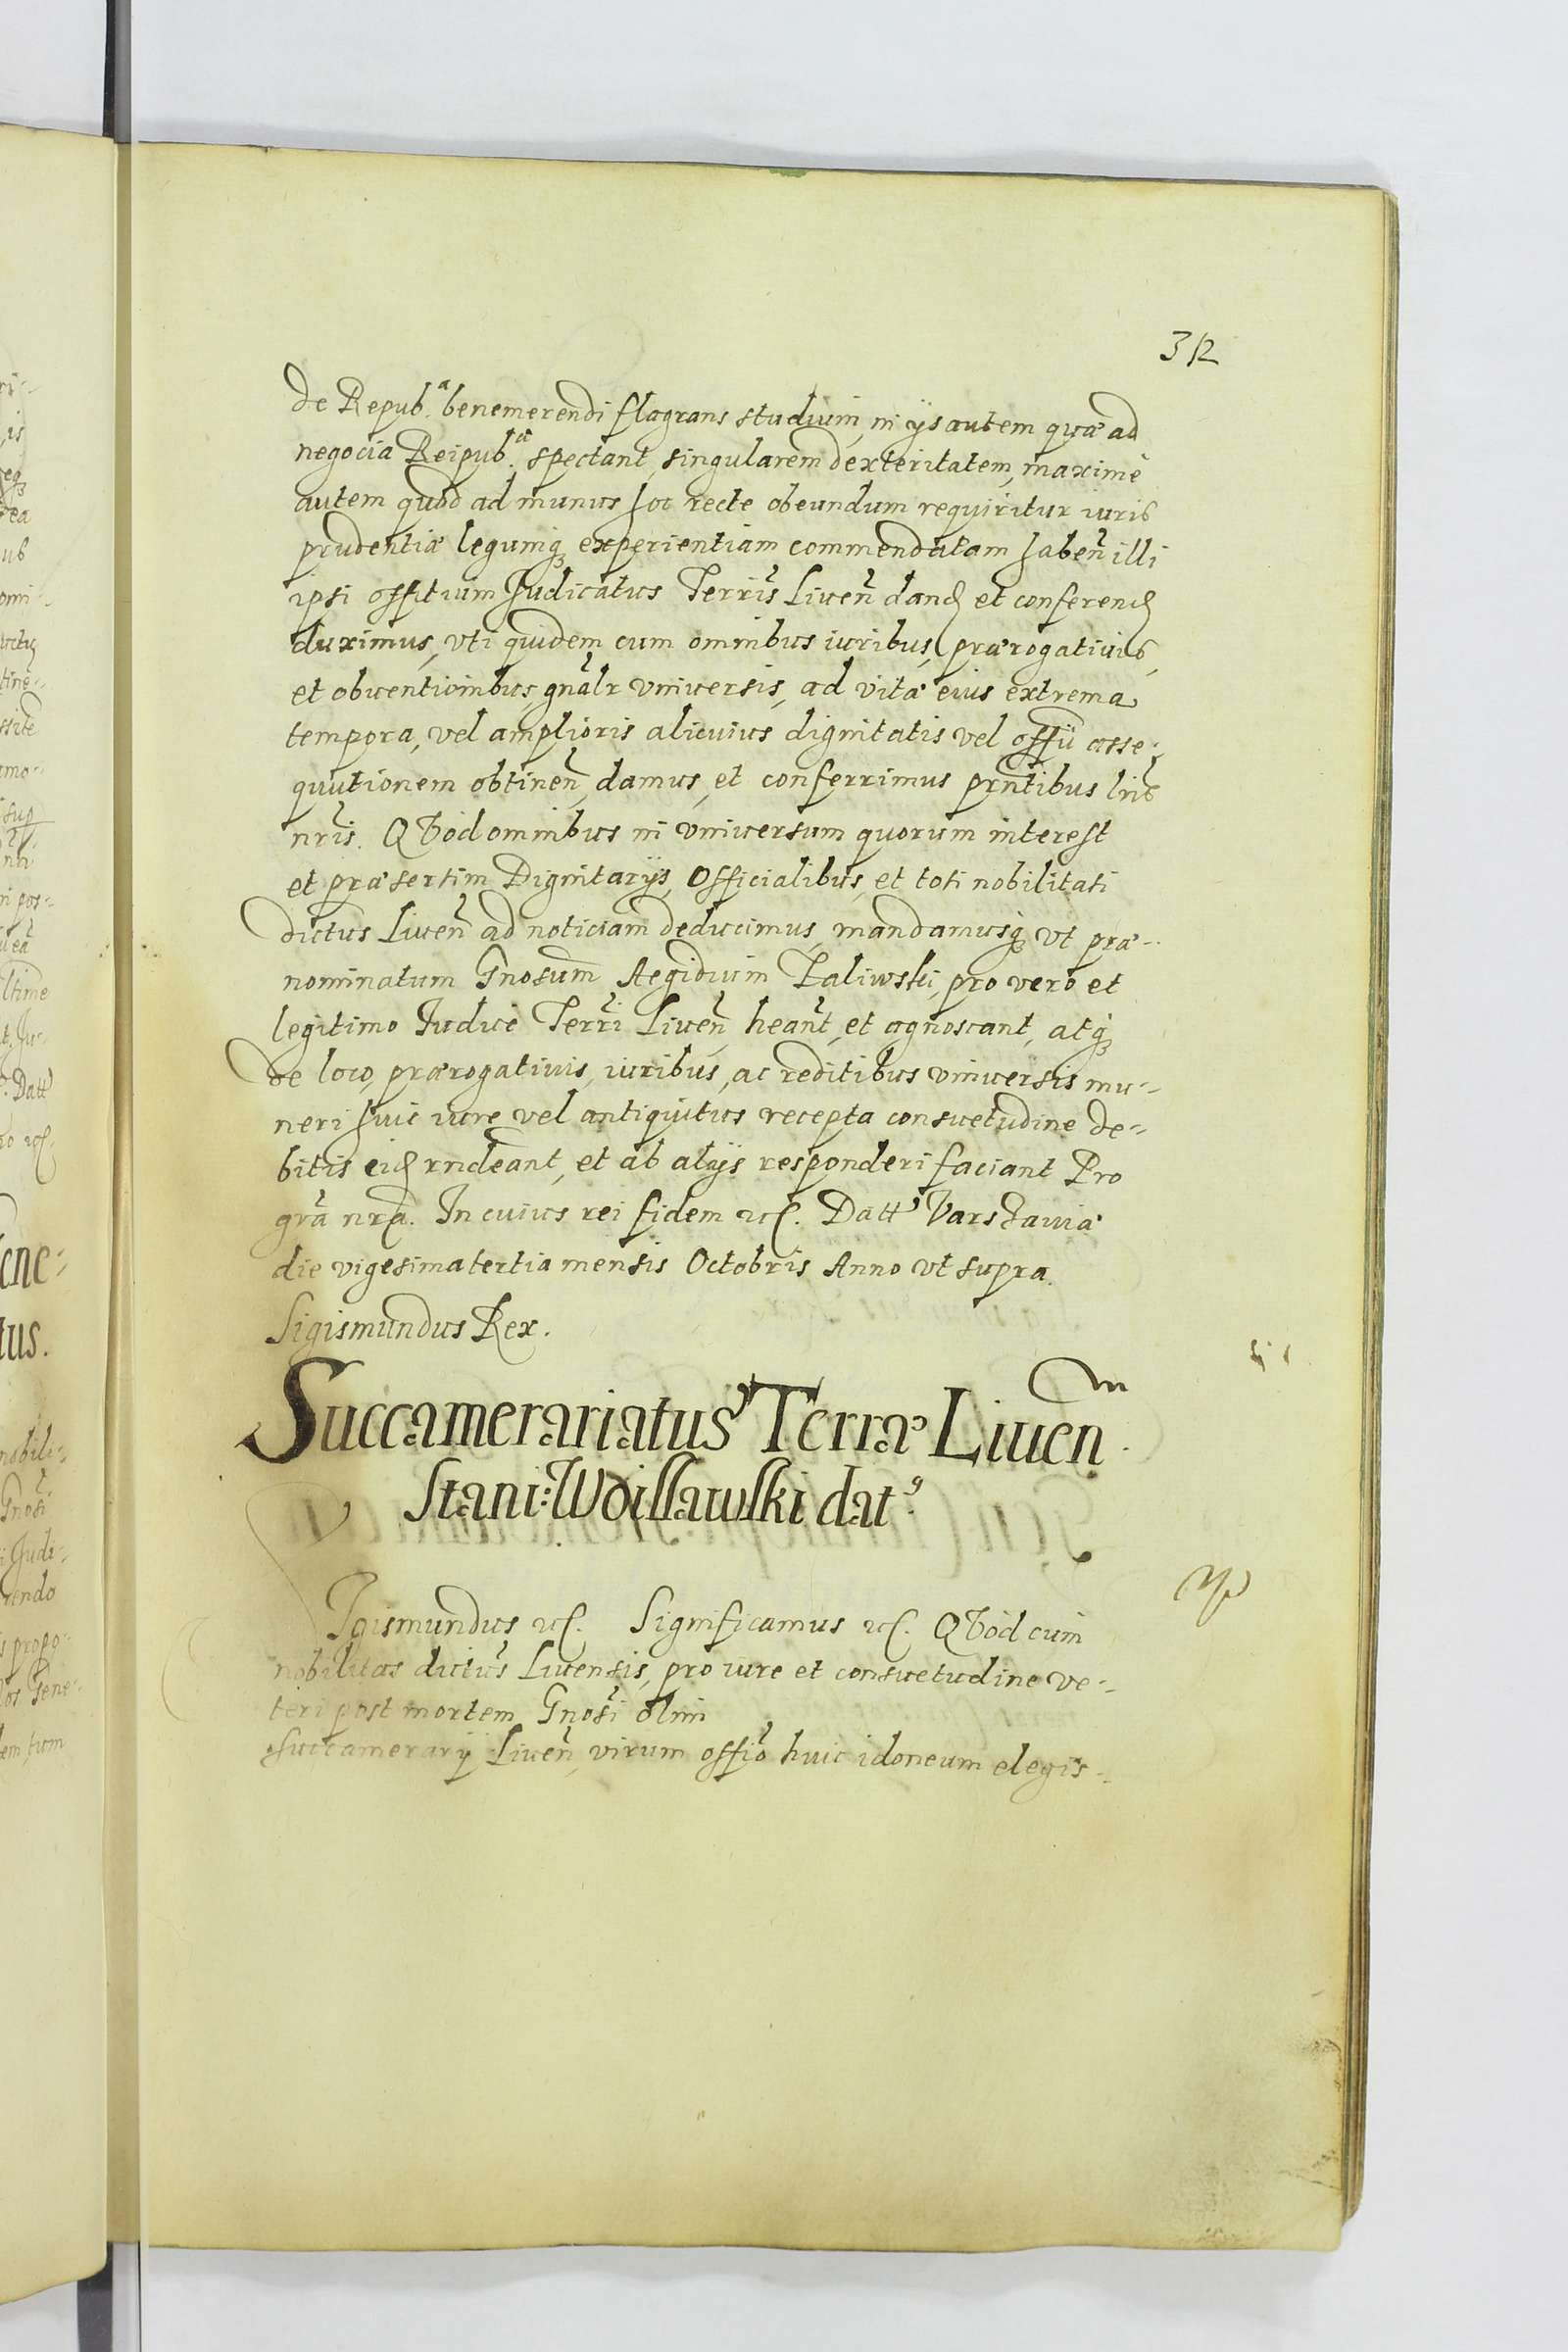 312
de Repub.ᵃ benemerendi flagrans studium, in ijs autem quæ ad
negocia Reipub.æ spectant, singularem dexteritatem, maxime
autem quod ad munus hoc recte obeundum requiritur iuris
prudentiæ legumq; experientiam commendatam haben̄ illi
ipsi offitium Judicatus Terrīs Liuen̄ dand et conferend
duximus, vti quidem cum omnibus iuribus, prærogatiuis,
et obuentionibus, gn̄alr vniuersis, ad vitæ eius extrema
tempora, vel amplioris alicuius dignitatis vel offīi asse-
quutionem obtinen̄, damus, et conferrimus prn̄tibus lrīs
nrīs. QVod omnibus in vniuersum quorum interest
et præsertim Dignitarijs, Officialibus, et toti nobilitati
dictus Liuen̄ ad noticiam deducimus, mandamusq; vt præ-
nominatum Gnosum̄ Aegidium Zaliwski, pro vero et
legitimo Judice Terrī Liuen̄, hean̄t, et agnoscant, atq;
de loco, prærogatiuis, iuribus, ac reditibus vniuersis mu-
neri huic iure vel antiquitus recepta consuetudine de-
bitis eid rn̄deant, et ab alijs responderi faciant Pro
grā nrā. In cuius rei fidem etc. Datt Varschauiæ
die vigesimatertia mensis Octobris Anno vt supra.
Sigismundus Rex.
Succamerariatus Terræ Liuen
Stani: Woissawski dat9.
Igismundus etc. Significamus etc. QVod cum
nobilitas dictus Liuensis, pro iure et consuetudine ve-
teri post mortem Gnosī olim
succamerarij Liuen̄, virum offīo huic idoneum elegis-